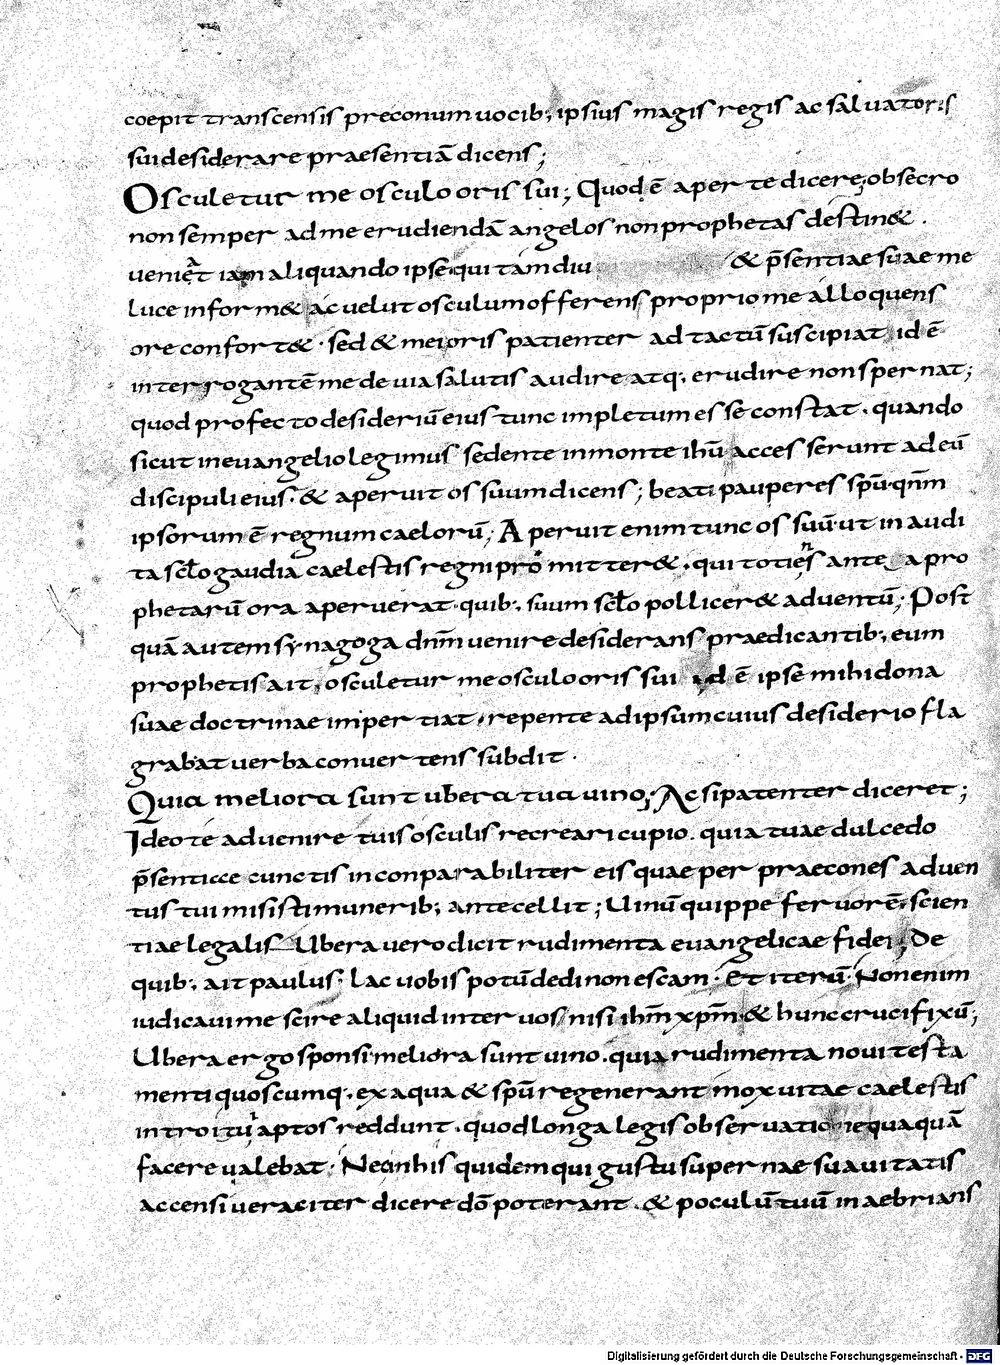 coepit transcensis preconum uocib; ipsius magis regis ac saluatoris
sui desiderare praesentiā dicens;
Osculetur me osculo oris sui; Quod ē aperte dicere; obsecro
non semper ad me erudiendā angelos non prophetas destin&.
ueniat iam aliquando ipse qui tamdiu & p̄sentiae suae me
luce inform& ac uelut osculum offerens proprio me alloquens
ore confort& · sed & mei oris patienter ad tactū suscipiat id ē
interrogantē me de uia salutis audire atq; erudire non spernat;
quod profecto desideriū eius tunc impletum esse constat · quando
sicut in euangelio legimus sedente in monte ihū accesserunt ad eū
discipuli eius · & aperuit os suum dicens; beati pauperes spū · qnm̄
ipsorum ē regnum caelorū; Aperuit enim tunc os suū · ut inaudi
ta sclō gaudia caelestis regni promitter& · qui totiens ante a pro
phetarū ora aperuerat · quib; suum sclō pollicer& aduentū; Post
quā autem synagoga dnm̄ uenire desiderans praedicantib; eum
prophetis ait, osculetur me osculo oris sui id ē ipse mihi dona
suae doctrinae impertiat, repente ad ipsum cuius desiderio fla
grabat uerba conuertens subdit ·
Quia meliora sunt ubera tua uino; Ac si patenter diceret;
Ideo te aduenire tuis osculis recreari cupio. quia tuae dulcedo
p̄sentiae cunctis inconparabiliter eis quae per praecones aduen
tus tui misisti munerib; antecellit; Uinū quippe feruorē scien
tiae legalis Ubera uero dicit rudimenta euangelicae fidei; De
quib; ait paulus · Lac uobis potū dedi non escam · Et iterū · Non enim
iudicaui me scire aliquid inter uos nisi ihm̄ xpm̄ · & hunc crucifixū;
Ubera ergo sponsi meliora sunt uino. quia rudimenta noui testa
menti quoscumq; ex aqua & spū regenerant mox uitae caelestis
introitui aptos reddunt · quod longa legis obseruatio nequaquā
facere ualebat · Nec in his quidem qui gustu supernae suauitatis
accensi ueraciter dicere dō poterant · & poculū tuū inaebrians